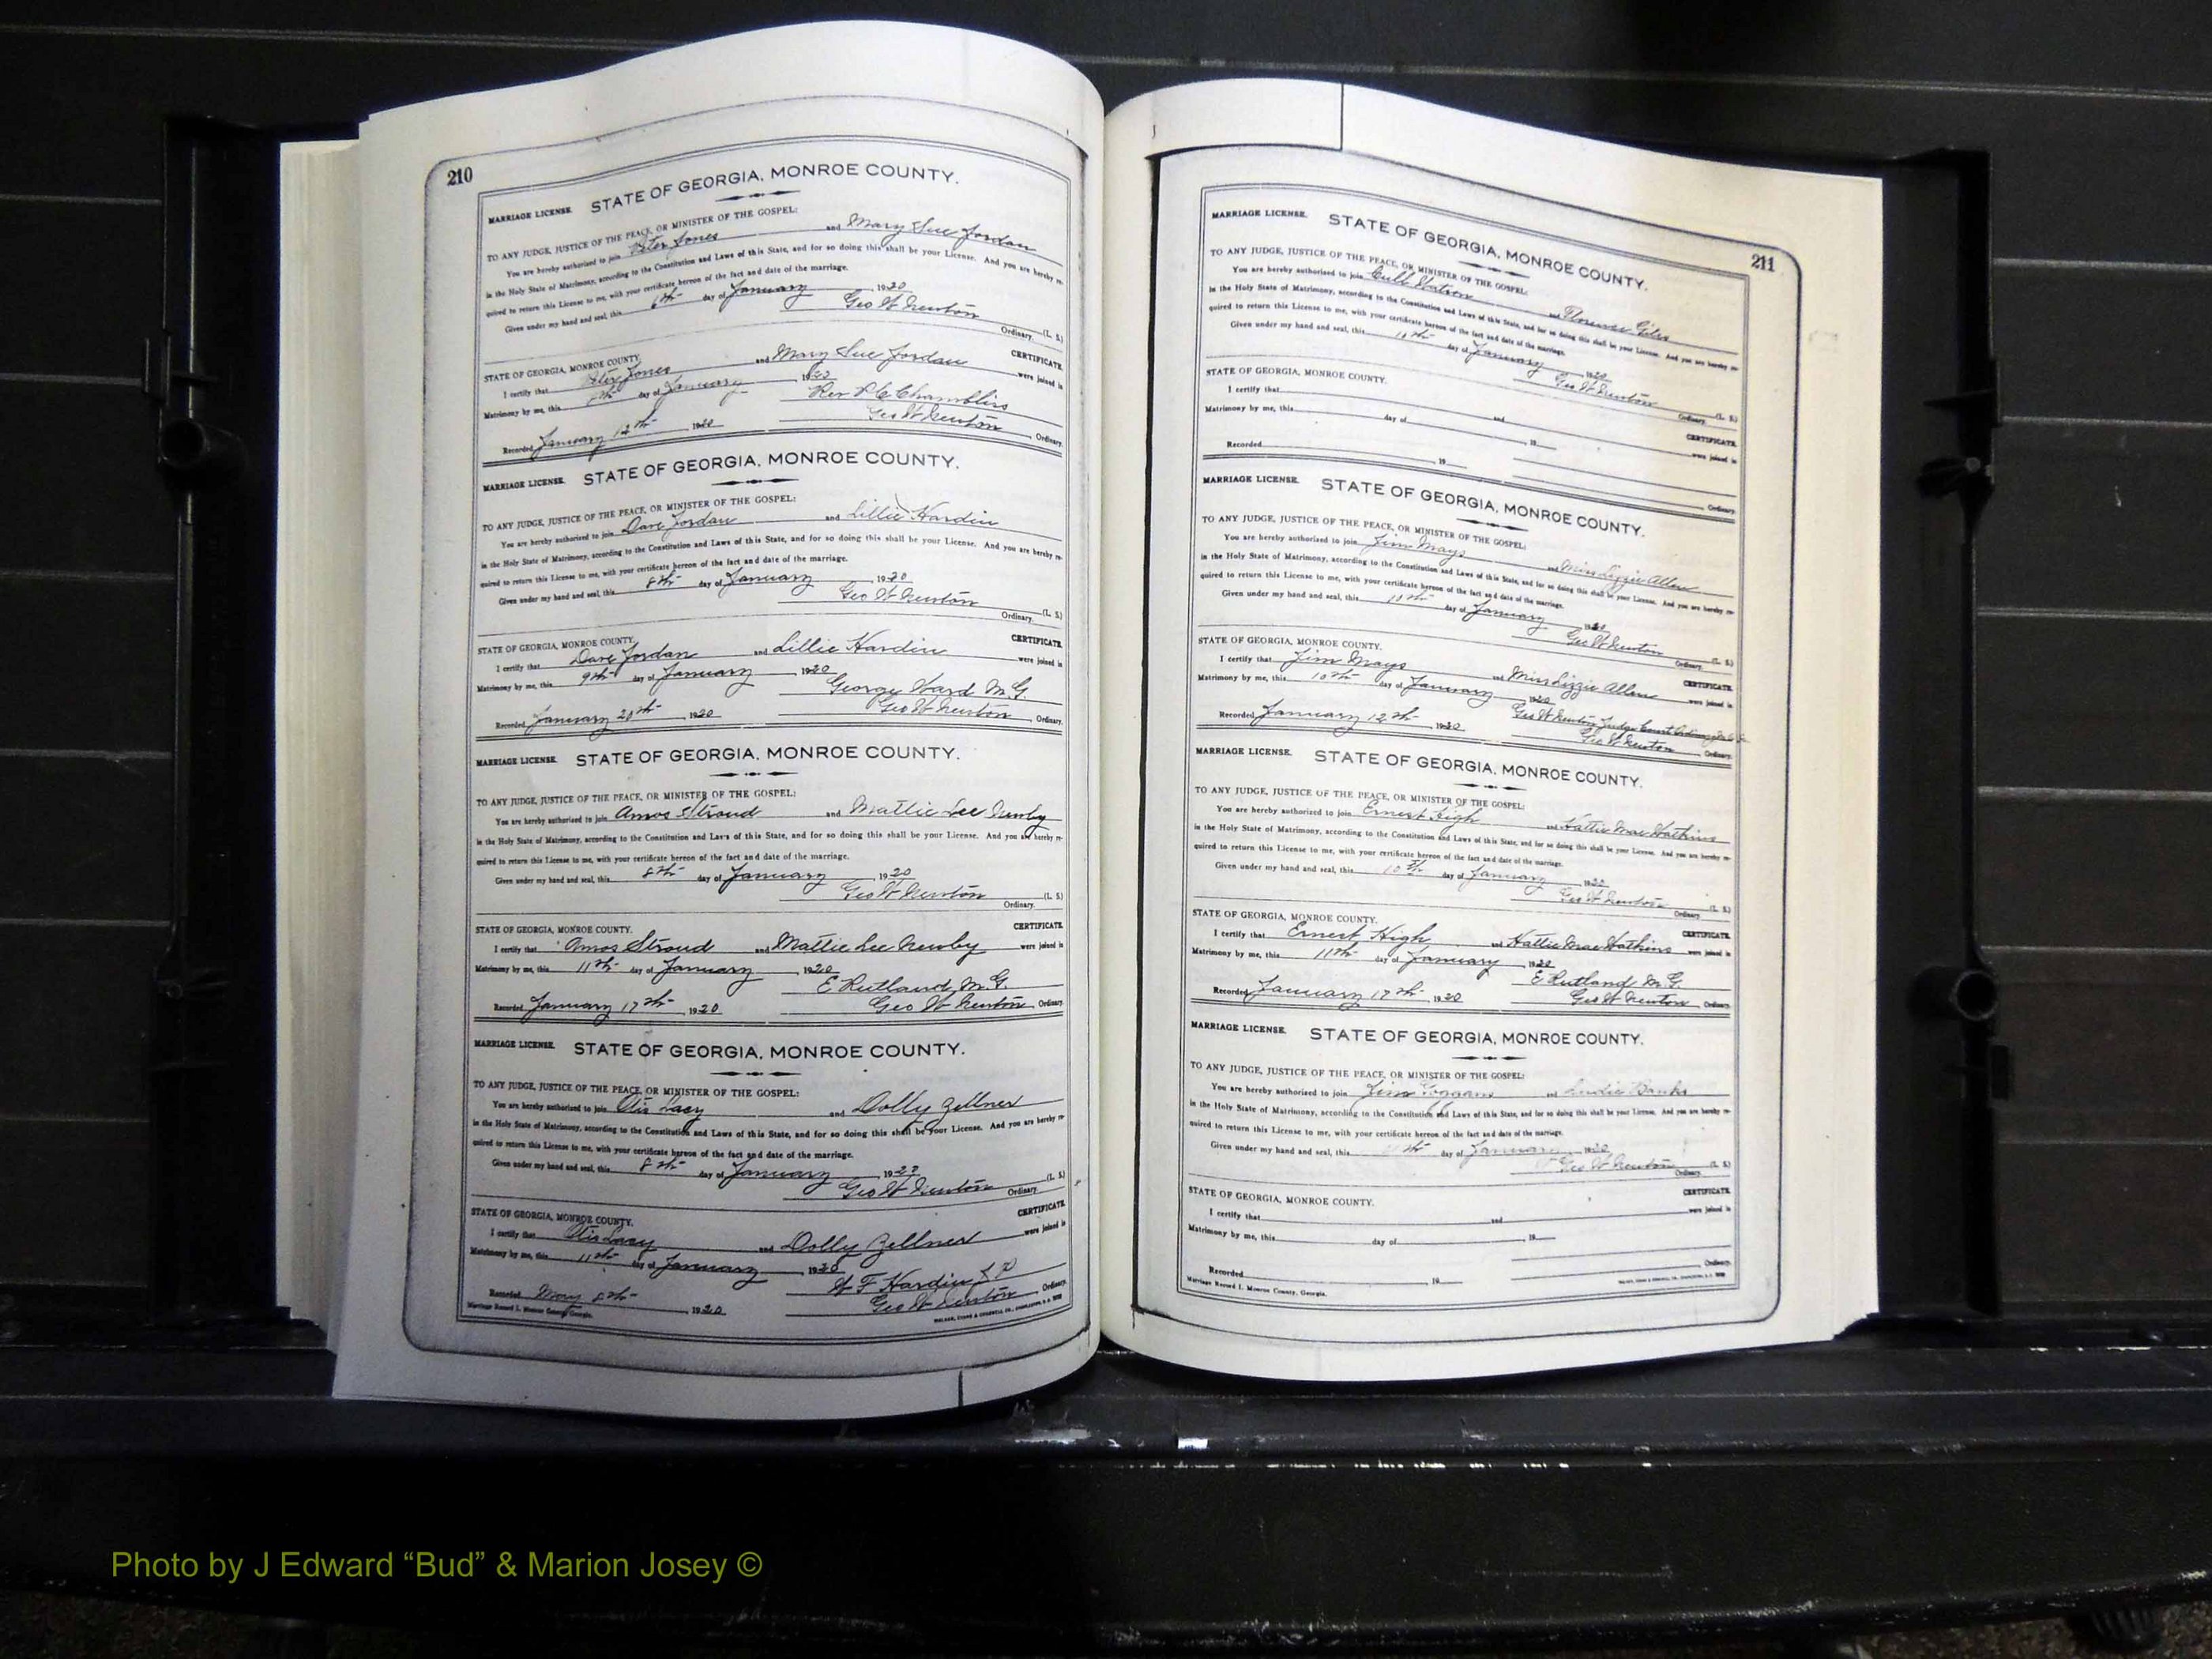 210
STATE OF GEORGIA, MONROE COUNTY.
MARRIAGE LICENSE.
TO ANY JUDGE, JUSTICE OF THE PEACE, OR MINISTER OF THE GOSPEL:
You are hereby authorized to join Peter Jones and Mary Sue Jordan
in the Holy State of Matrimony, according to the Constitution and Laws of this State, and for so doing this shall be your License. And you are hereby re-
quired to return this License to me, with your certificate hereon of the fact and date of the marriage.
Given under my hand and seal, this 6th day of January 1920
Geo W Newton (L. S.)
Ordinary.
STATE OF GEORGIA, MONROE COUNTY. CERTIFICATE.
I certify that Peter Jones and Mary Sue Jordan were joined in
Matrimony by me, this day of January 1920
Rev Chambliss
Recorded January 12th 1920 Geo W Newton Ordinary.
MARRIAGE LICENSE. STATE OF GEORGIA, MONROE COUNTY.
TO ANY JUDGE, JUSTICE OF THE PEACE, OR MINISTER OF THE GOSPEL:
You are hereby authorized to join Dave Jordan and Lillie Hardin
in the Holy State of Matrimony, according to the Constitution and Laws of this State, and for so doing this shall be your License. And you are hereby re-
quired to return this License to me, with your certificate hereon of the fact and date of the marriage.
Given under my hand and seal, this 8th day of January 1920
Geo W Newton (L. S.)
Ordinary.
STATE OF GEORGIA, MONROE COUNTY. CERTIFICATE.
I certify that Dave Jordan and Lillie Hardin were joined in
Matrimony by me, this 9th day of January 1920
George Ward M.G.
Recorded January 1920 Geo W Newton Ordinary.
MARRIAGE LICENSE. STATE OF GEORGIA, MONROE COUNTY.
TO ANY JUDGE, JUSTICE OF THE PEACE, OR MINISTER OF THE GOSPEL:
You are hereby authorized to join Amos Stroud and Mattie Lee Newby
in the Holy State of Matrimony, according to the Constitution and Laws of this State, and for so doing this shall be your License. And you are hereby re-
quired to return this License to me, with your certificate hereon of the fact and date of the marriage.
Given under my hand and seal, this 8th day of January 1920
Geo W Newton (L. S.)
Ordinary.
STATE OF GEORGIA, MONROE COUNTY. CERTIFICATE.
I certify that Amos Stroud and Mattie Lee Newby were joined in
Matrimony by me, this 11th day of January 1920
E Rutland, M.G.
Recorded January 17th 1920 Geo W Newton Ordinary.
MARRIAGE LICENSE. STATE OF GEORGIA, MONROE COUNTY.
TO ANY JUDGE, JUSTICE OF THE PEACE, OR MINISTER OF THE GOSPEL:
You are hereby authorized to join Otis Lacy and Dolly Zellner
in the Holy State of Matrimony, according to the Constitution and Laws of this State, and for so doing this shall be your License. And you are hereby re-
quired to return this License to me, with your certificate hereon of the fact and date of the marriage.
Given under my hand and seal, this 8th day of January 19
Geo W Newton (L. S.)
Ordinary.
STATE OF GEORGIA, MONROE COUNTY. CERTIFICATE.
I certify that Otis Lacy and Dolly Zellner were joined in
Matrimony by me, this 11th day of January 1920
W F Hardin J.P.
Recorded May 8th 1920 Geo W Newton Ordinary.
Marriage Record I. Monroe County, Georgia.
211
MARRIAGE LICENSE. STATE OF GEORGIA, MONROE COUNTY.
TO ANY JUDGE, JUSTICE OF THE PEACE, OR MINISTER OF THE GOSPEL:
You are hereby authorized to join Watson and Florence Giles
in the Holy State of Matrimony, according to the Constitution and Laws of this State, and for so doing this shall be your License. And you are hereby re-
quired to return this License to me, with your certificate hereon of the fact and date of the marriage.
Given under my hand and seal, this 10th day of January 1920
Geo W Newton (L. S.)
Ordinary.
STATE OF GEORGIA, MONROE COUNTY. CERTIFICATE.
I certify that and were joined in
Matrimony by me, this day of 19
Recorded 19 Ordinary.
MARRIAGE LICENSE. STATE OF GEORGIA, MONROE COUNTY.
TO ANY JUDGE, JUSTICE OF THE PEACE, OR MINISTER OF THE GOSPEL:
You are hereby authorized to join Jim Mays and Miss Lizzie Allen
in the Holy State of Matrimony, according to the Constitution and Laws of this State, and for so doing this shall be your License. And you are hereby re-
quired to return this License to me, with your certificate hereon of the fact and date of the marriage.
Given under my hand and seal, this 10th day of January 1920
Geo W Newton (L. S.)
Ordinary.
STATE OF GEORGIA, MONROE COUNTY. CERTIFICATE.
I certify that Jim Mays and Miss Lizzie Allen were joined in
Matrimony by me, this 10th day of January 1920
Geo W Newton Judge Court Ordinary
Recorded January 12th 1920 Geo W Newton Ordinary.
MARRIAGE LICENSE. STATE OF GEORGIA, MONROE COUNTY.
TO ANY JUDGE, JUSTICE OF THE PEACE, OR MINISTER OF THE GOSPEL:
You are hereby authorized to join Ernest High and Hattie Mae Watkins
in the Holy State of Matrimony, according to the Constitution and Laws of this State, and for so doing this shall be your License. And you are hereby re-
quired to return this License to me, with your certificate hereon of the fact and date of the marriage.
Given under my hand and seal, this 10th day of January 1920
Geo W Newton (L. S.)
Ordinary.
STATE OF GEORGIA, MONROE COUNTY. CERTIFICATE.
I certify that Ernest High and Hattie Mae Watkins were joined in
Matrimony by me, this 11th day of January 1920
E Rutland M.G.
Recorded January 17th 1920 Geo W Newton Ordinary.
MARRIAGE LICENSE. STATE OF GEORGIA, MONROE COUNTY.
TO ANY JUDGE, JUSTICE OF THE PEACE, OR MINISTER OF THE GOSPEL:
You are hereby authorized to join Jim Goggans and Banks
in the Holy State of Matrimony, according to the Constitution and Laws of this State, and for so doing this shall be your License. And you are hereby re-
quired to return this License to me, with your certificate hereon of the fact and date of the marriage.
Given under my hand and seal, this day of January 1920
Geo W Newton (L. S.)
Ordinary.
STATE OF GEORGIA, MONROE COUNTY. CERTIFICATE.
I certify that and were joined in
Matrimony by me, this day of 19
Recorded 19 Ordinary.
Marriage Record I. Monroe County, Georgia.
Photo by J Edward “Bud” & Marion Josey ©